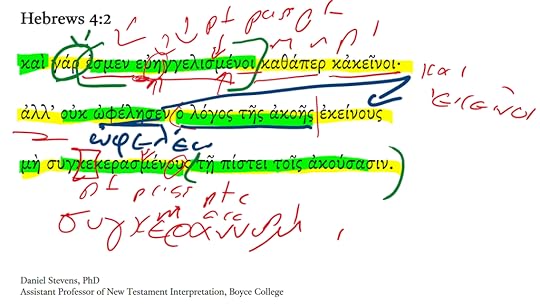 Hebrews 4:2
pt pass pt
καὶ γάρ ἐσμεν εὐηγγελισμένοι καθάπερ κἀκεῖνοι·
και
ἀλλ’ οὐκ ὠφέλησεν ὁ λόγος τῆς ἀκοῆς ἐκείνους
ἐκεινοι
μὴ συγκεκερασμένους τῇ πίστει τοῖς ἀκούσασιν.
pt pass ptc
acc
συγκεραννυμι
Daniel Stevens, PhD
Assistant Professor of New Testament Interpretation, Boyce College